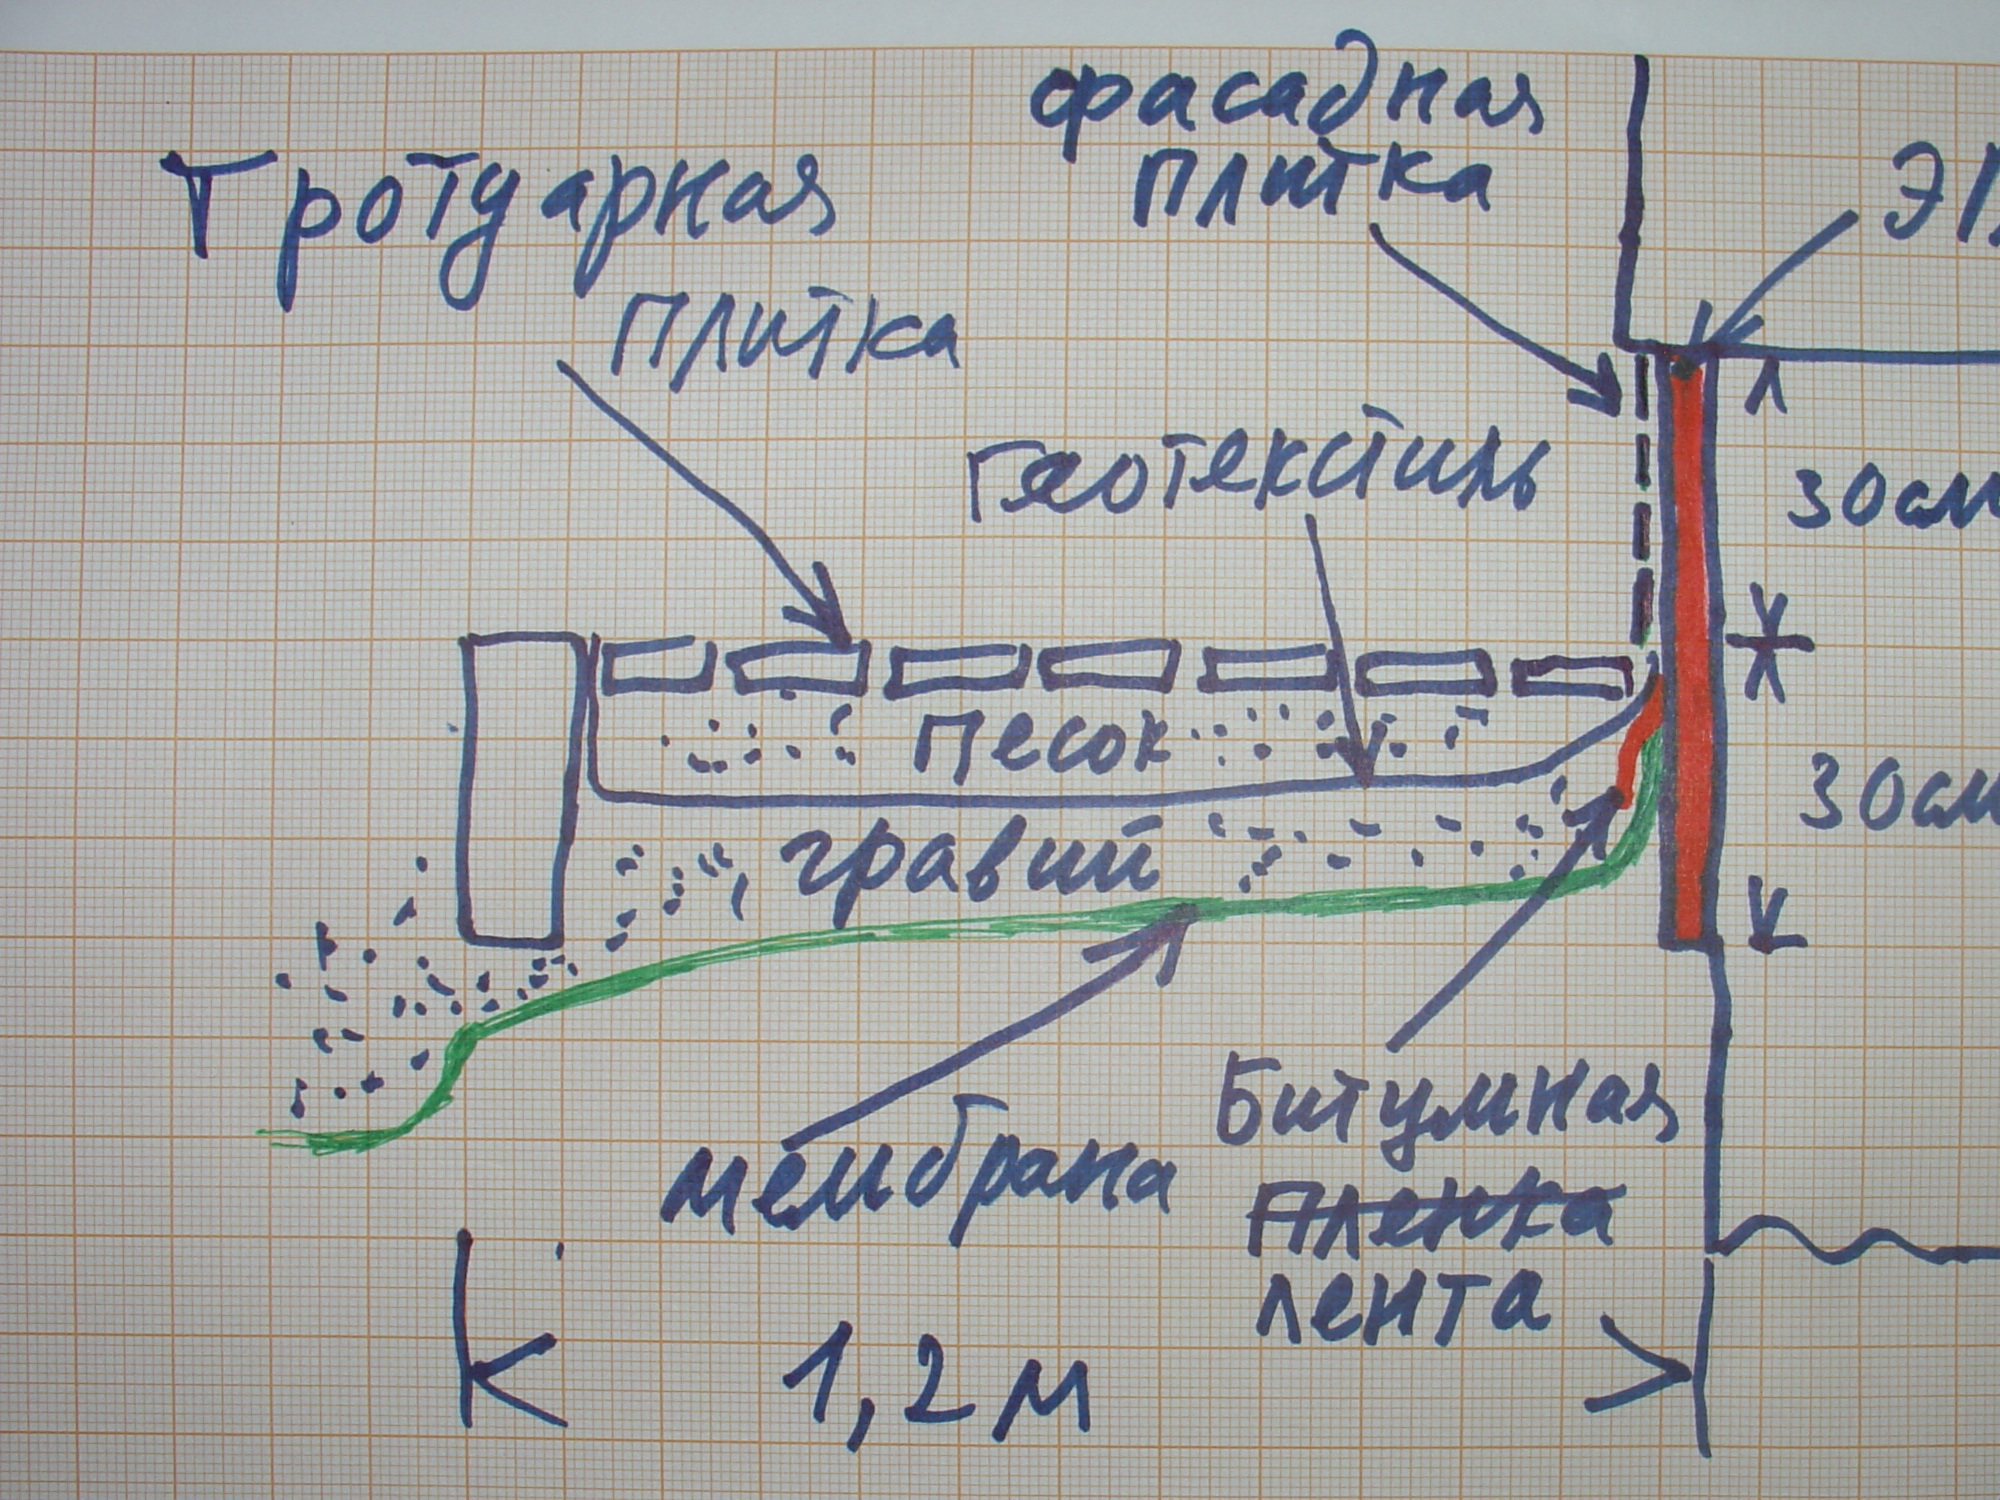 фасадная
плитка
Тротуарная
плитка
ЭП
геотекстиль
30см
песок
30см
гравий
мембрана
Битумная
пленка
лента
1,2 м